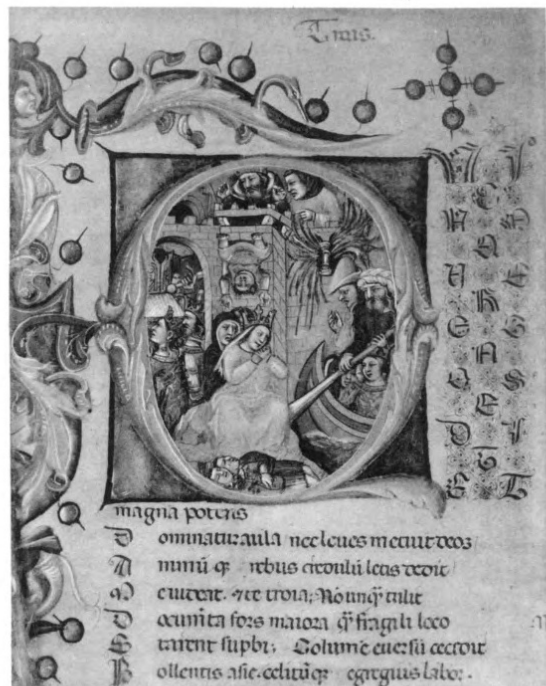 Troas.
magna potens
D ominatur aula nec leues metuit deos
A nimũ q; rebus credulũ letis dedit
M e uideat. et te troia; Nõ unq̃ tulit
D ocum̃ta fors maiora q̃ fragili loco
S tarent supbi. Columẽ euersũ occidit
P ollentis asie. celitũq; egregius labor.